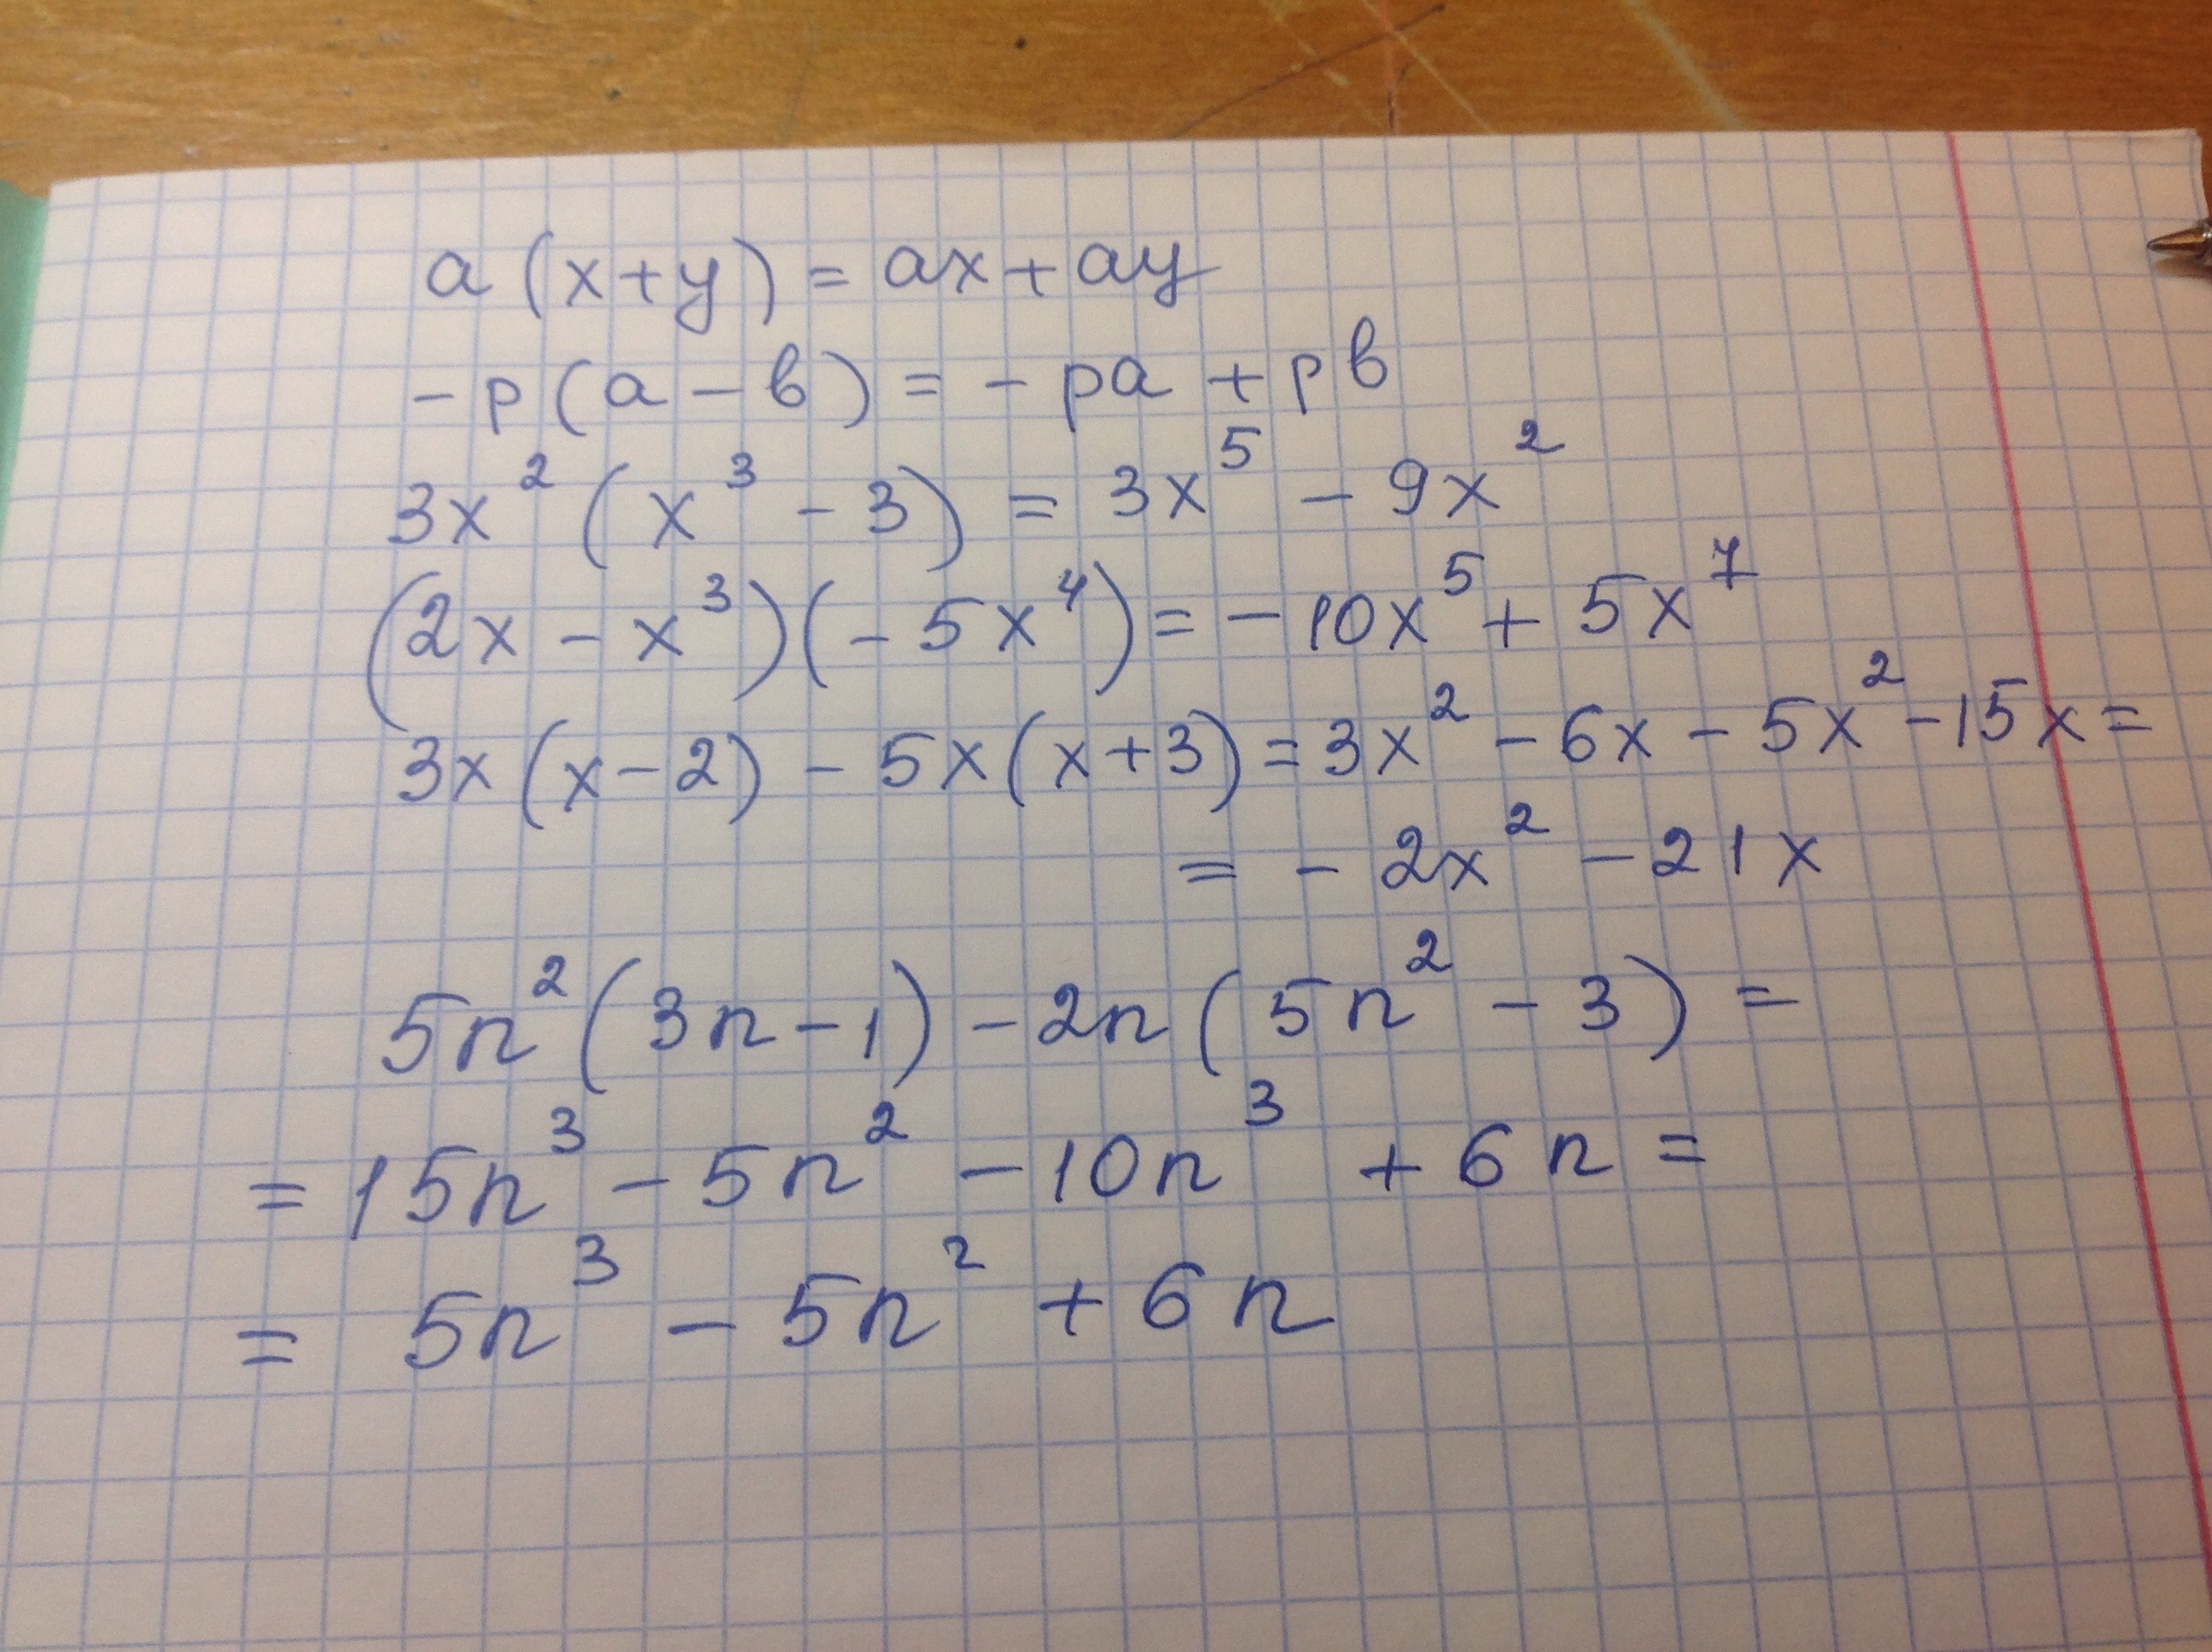 a(x+y) = ax + ay
-p(a-b) = -pa + pb
3x²(x³-3) = 3x⁵ - 9x²
(2x-x³)(-5x⁴) = -10x⁵ + 5x⁷
3x(x-2) - 5x(x+3) = 3x² - 6x - 5x² - 15x =
= -2x² - 21x
5n²(3n-1) - 2n(5n²-3) =
= 15n³ - 5n² - 10n³ + 6n =
= 5n³ - 5n² + 6n